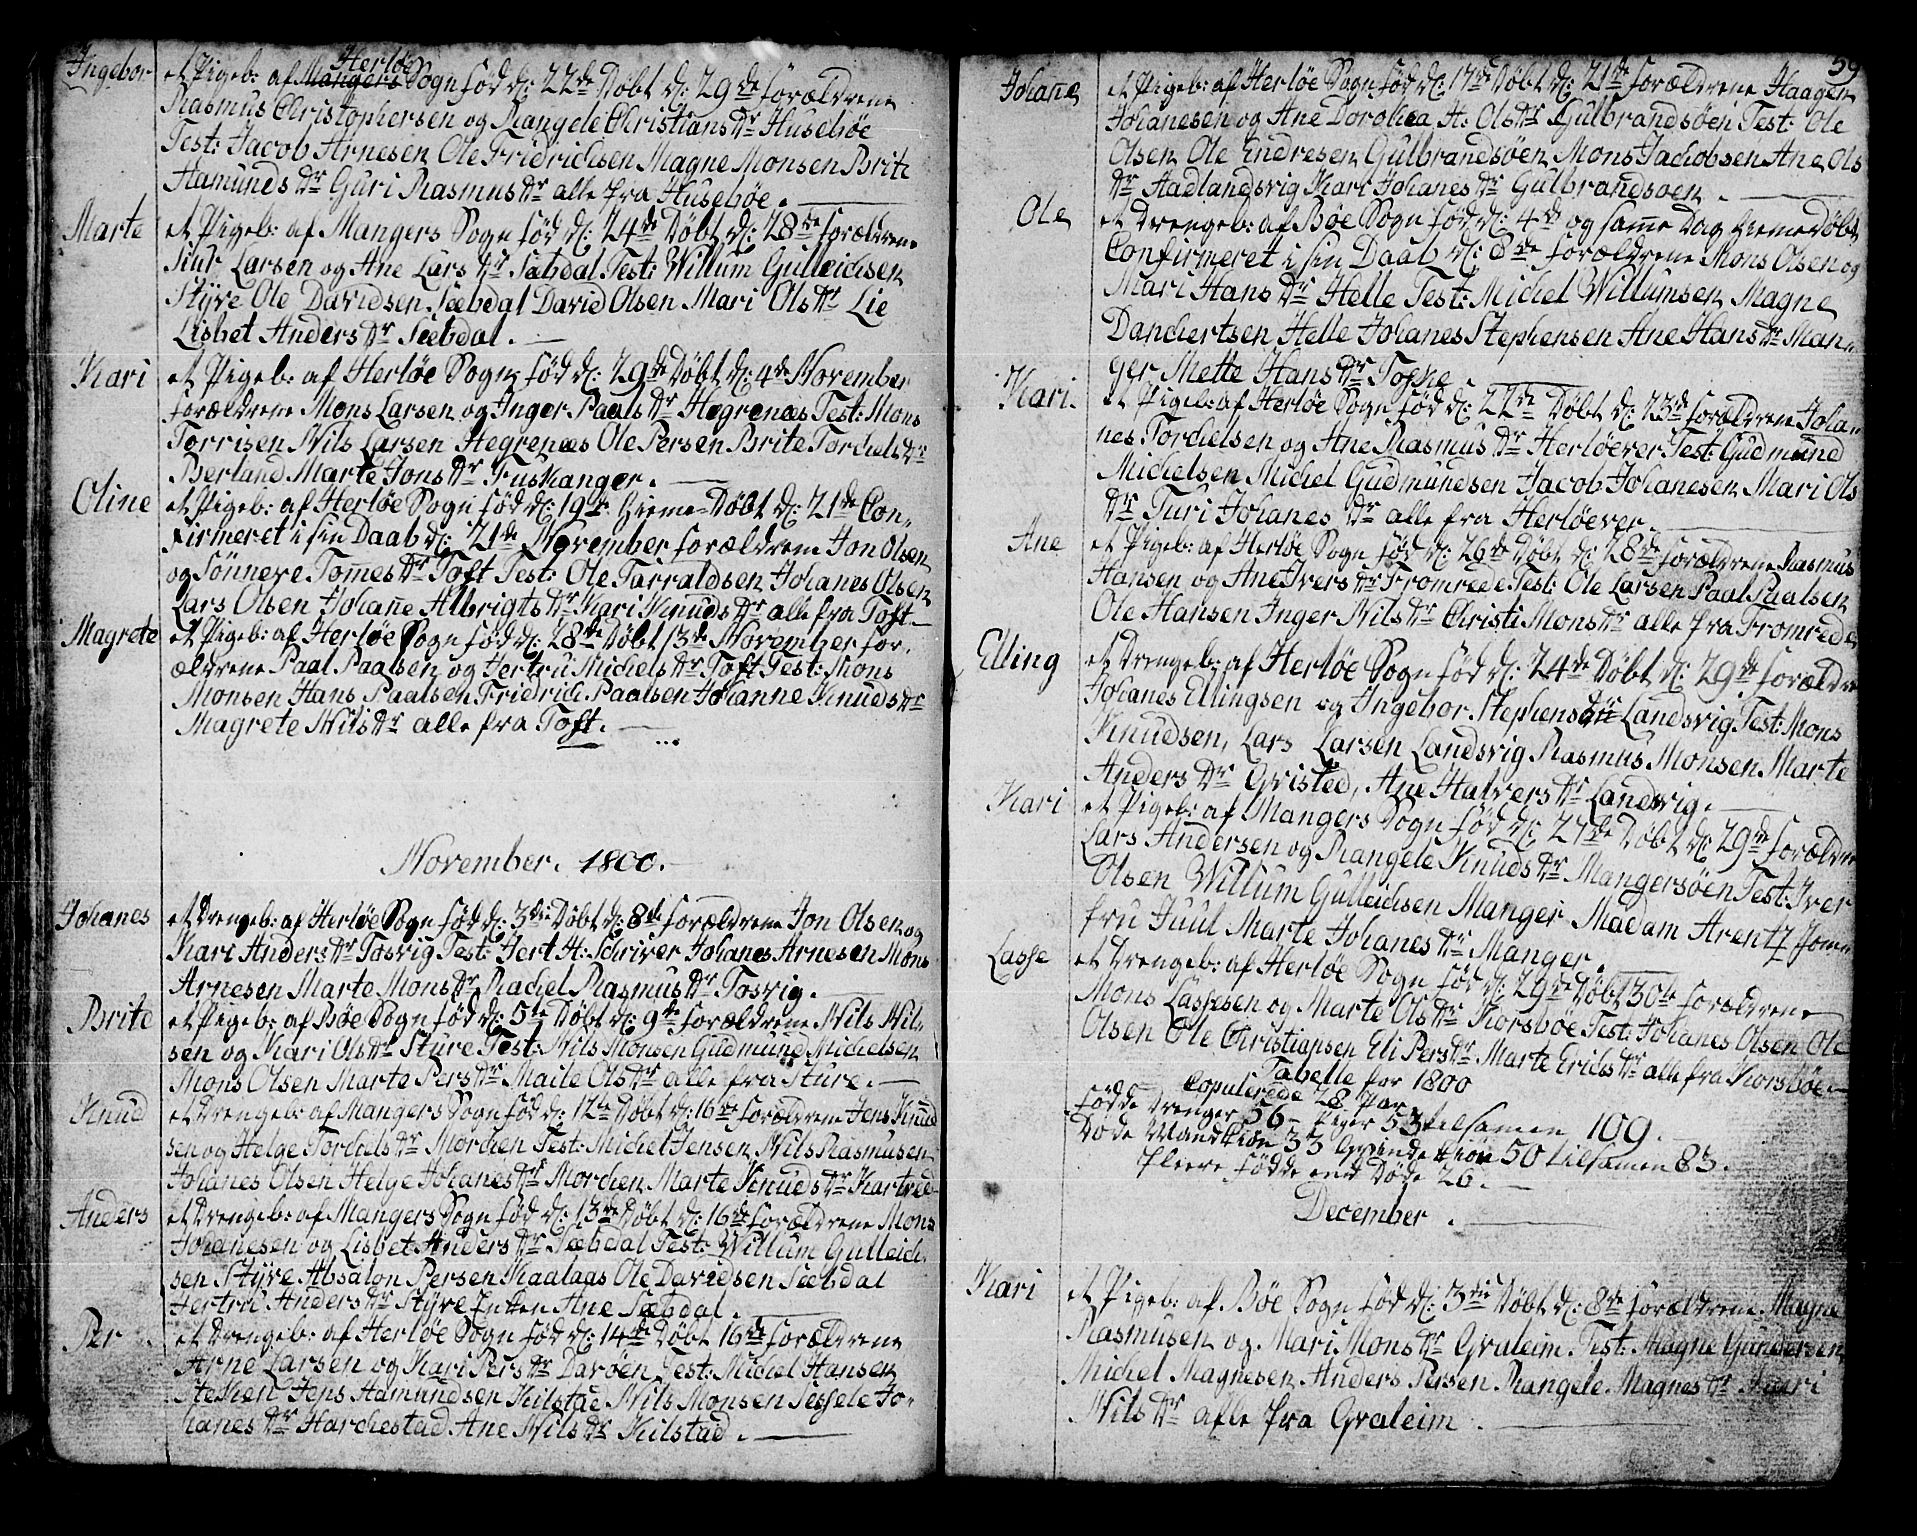 Herløe
Ingebor et Pigeb: af Mangers Sogn fød d: 22de Døbt d: 29de forældrene
Rasmus Christophersen og Rangele Christians Dr Husebøe
Test: Jacob Arnesen Ole Fridrichsen Magne Monsen Brite
Hamunds Dr Guri Rasmus Dr alle fra Husebøe.
Marte et Pigeb: af Mangers Sogn fød d: 24de Døbt d: 28de forældrene
Siur Larsen og Ane Lars Dr Sæbdal Test: Willum Gulleichsen
Styve Ole Davidsen Sæbdal David Olsen Mari Ols Dr Lie
Lisbet Anders Dr Sæbdal.
Kari et Pigeb: af Herløe Sogn fød d: 29de Døbt d: 4de November
forældrene Mons Larsen og Inger Paals Dr Hegrenæs Test: Mons
Torrisen Nils Larsen Hegrenæs Ole Persen Brite Torchels Dr
Berland Marte Jons Dr Fuskanger.
Oline et Pigeb: af Herløe Sogn fød d: 19de Hieme-Døbt d: 21de Con-
firmeret i sin Daab d: 21de November forældrene Jon Olsen
og Sönneve Tomes Dr Toft Test: Ole Tarraldsen Johanes Olsen
Lars Olsen Johane Albrigts Dr Kari Knuds Dr alle fra Toft.
Magrete et Pigeb: af Herløe Sogn fød d: 28de Døbt 3de November for-
ældrene Paal Paalsen og Hertru Michels Dr Toft Test: Mons
Monsen Hans Paalsen Fridrich Paalsen Johanne Knuds Dr
Magrete Nils Dr alle fra Toft.
November. 1800.
Johanes et Drengeb: af Herløe Sogn fød d: 3die Døbt d: 8de forældrene Jon Olsen og
Kari Anders Dr Tosvig Test: Hert H: Schriver Johanes Arnesen Mons
Arnesen Marte Mons Dr Rachel Rasmus Dr Tosvig.
Brite et Pigeb: af Bøe Sogn fød d: 5te Døbt d: 9de forældrene Nils Nil-
sen og Kari Ols Dr Sture Test: Nils Monsen Gudmund Michelsen
Mons Olsen Marte Pers Dr Maile Ols Dr alle fra Sture.
Knud et Drengeb: af Mangers Sogn fød d: 12te Døbt d: 16de forældrene Jens Knud
sen og Helge Torchels Dr Morchen Test: Michel Jensen Nils Rasmusen
Johanes Olsen Helge Johanes Dr Morchen Marte Knuds Dr Kartved
Anders et Drengeb: af Mangers Sogn fød d: 13de Døbt d: 16de forældrene Mons
Johanesen og Lisbet Anders Dr Sæbdal Test: Willum Gulleich-
sen Styve Absalon Persen Kaalaas Ole Davidsen Sæbdal
Hertru Anders Dr Styve Enken Ane Sæbdal.
Per et Drengeb: af Herløe Sogn fød d: 14de Døbt 16de forældrene
Arne Larsen og Kari Pers Dr Davøen Test: Michel Hansen
Jens Hamundsen Kilstad Nils Monsen Sessele Jo-
hanes Dr Harchestad Ane Nils Dr Kilstad.
59
Johane et Pigeb: af Herløe Sogn fød d: 17de Døbt d: 21de forældrene Haagen
Johanesen og Ane Dorothea H: Ols Dr Gulbrandsöen Test: Ole
Olsen Ole Endresen Gulbrandsöen Mons Jachobsen Ane Ols
Dr Aadlandsvig Kari Johanes Dr Gulbrandsøen.
Ole et Drengeb: af Bøe Sogn fød d: 4de og same Dag Hieme Døbt
Confirmeret i sin Daab d: 8de forældrene Mons Olsen og
Mari Hans Dr Helle Test: Michel Willumsen Magne
Danchertsen Helle Johanes Stephensen Ane Hans Dr Man-
ger Mette Hans Dr Toske.
Kari. et Pigeb: af Herløe Sogn fød d: 22de Døbt d: 23de forældrene Joha-
nes Torchelsen og Ane Rasmus Dr Herløever Test: Gudmund
Michelsen Michel Gudmundsen Jacob Johanesen Mari Ols
Dr Turi Johanes Dr alle fra Herløever.
Ane et Pigeb: af Herløe Sogn fød d: 26de Døbt d: 28de forældrene Rasmus
Hansen og Ane Ivers Dr Fromrede Test: Ole Larsen Paal Paalsen
Ole Hansen Inger Nils Dr Christi Mons Dr alle fra Fromrede
Elling et Drengeb: af Herløe Sogn fød d: 24de Døbt d: 29de forældre
Johanes Ellingsen og Ingebor Stephens Dr Landsvig Test: Mons
Knudsen, Lars Larsen Landsvig Rasmus Monsen Marte
Anders Dr Qvisted, Ane Halvers Dr Landsvig.
Kari et Pigeb: af Mangers Sogn fød d: 27de Døbt d: 29de forældre
Lars Andersen og Rangele Knuds Dr Mangersøen Test: Iver
Olsen Willum Gulleichsen Manger Madam Arentz Jom-
fru Juul Marte Johanes Dr Manger.
Lasse et Drengeb: af Herløe Sogn fød d: 29de Døbt 30te forældrene
Mons Lassesen og Marte Ols Dr Korsbøe Test: Johanes Olsen Ole
Olsen Ole Christiansen Eli Pers Dr Marte Erichs Dr alle fra Korsbøe.
Tabelle for 1800
Copulerede 28 Par
Fødde Drenger 56 - Piger 53 tilsamen 109.
Døde Mandkiøn 33 Qvindekiön 50 tilsamen 83.
fleere fødde end Døde 26.
December.
Kari et Pigeb: af Bøe Sogn fød d: 3die Døbt d: 8de forældrene Magne
Rasmusen og Mari Mons Dr Qvaleim. Test: Magne Gundersen
Michel Magnesen Anders Persen Rangele Magnes Dr Kari
Nils Dr alle fra Qvaleim.